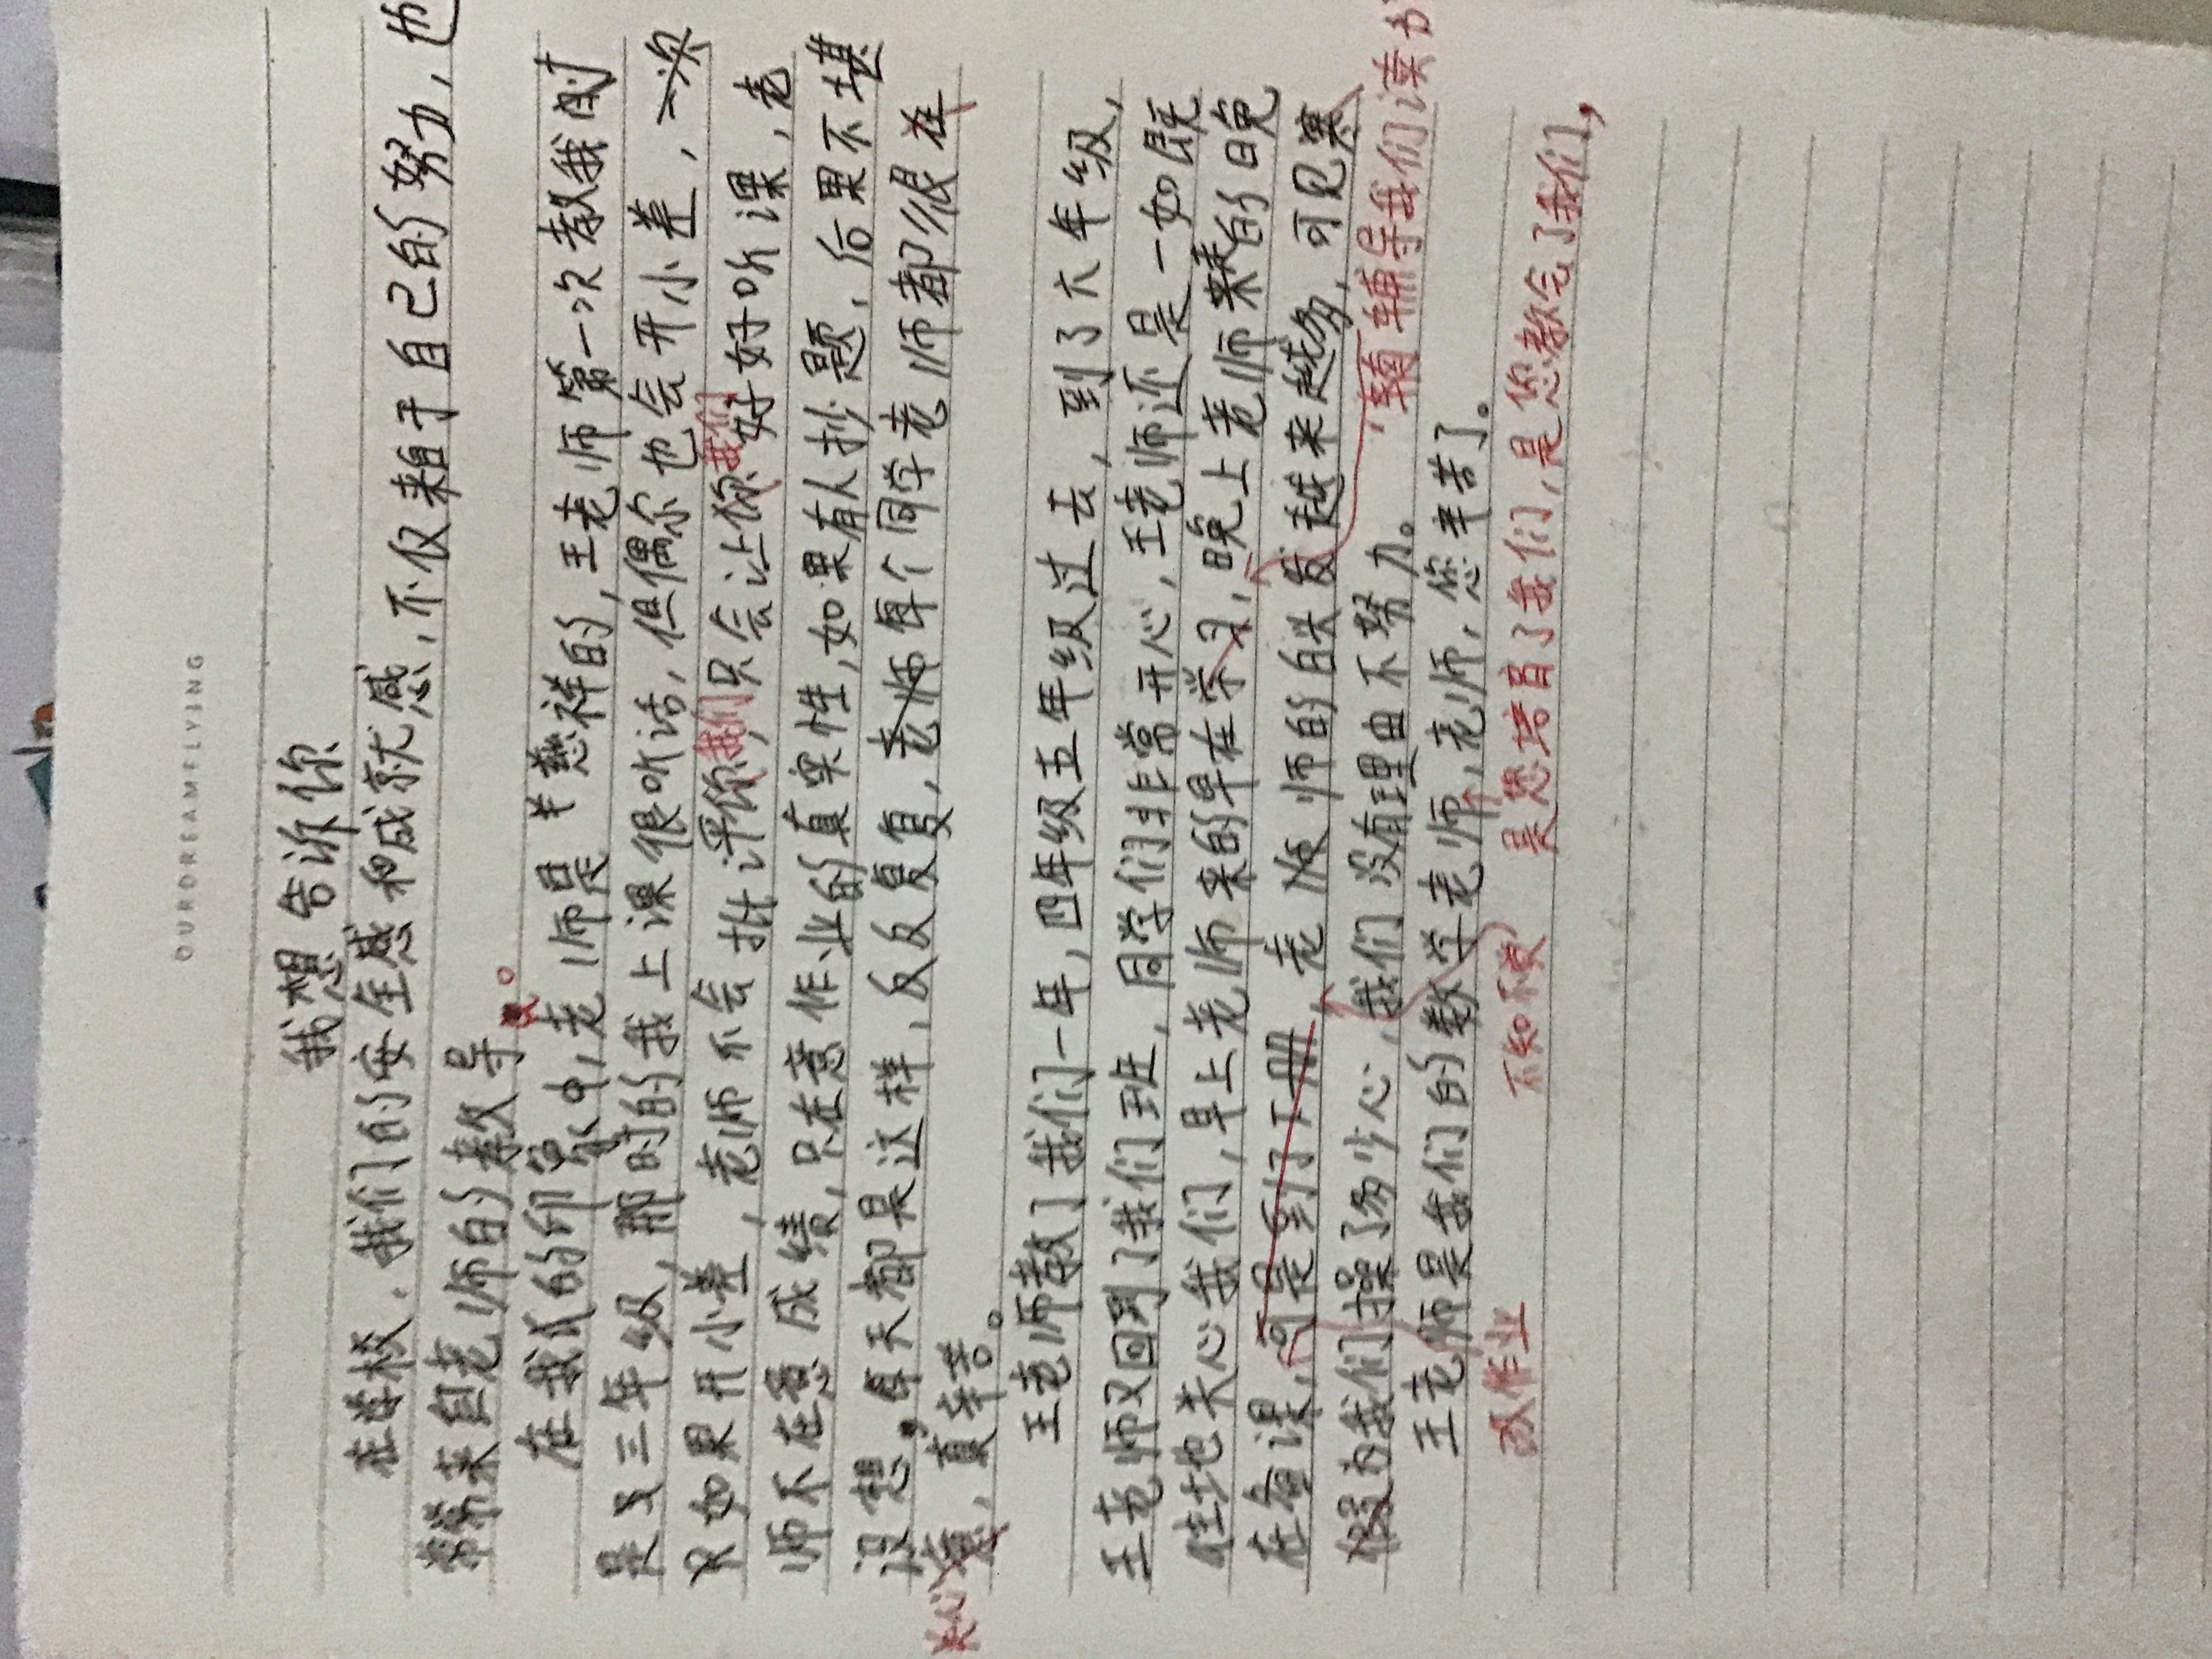 OURDREAMFLYING
我想告诉你
在学校，我们的安全感和成就感，不仅来自于自己的努力，也
常常来自老师的教导。
在我的印象中，老师是半慈祥的，王老师第一次教我时
是三年级，那时的我上课很听话，但偶尔也会开小差，
如果开小差，老师不会批评我们，只会让我们好好听课，老
师不在意成绩，只在意作业的真实性，如果有人抄题，后果不堪
设想，每天都是这样，反反复复，每个同学老师都很
关心，真辛苦。
王老师教了我们一年，四年级五年级过去，到了六年级，
王老师又回到了我们班，同学们非常开心，王老师还是一如既
往地关心我们，早上老师来的早在学习，晚上老师走的晚
在备课，可是到了，老师的白头发越来越多，可见
为我们操了多少心，我们没有理由不努力。
王老师是我们的数学老师，老师，您辛苦了。
，辅导我们读书
改作业
不知不觉
是您培育了我们，是您教会了我们，